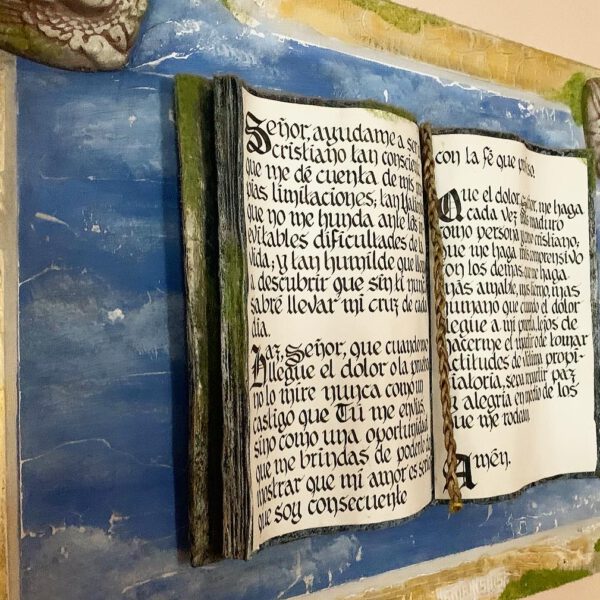 Señor, ayudame a ser
cristiano tan consciente
que me dé cuenta de mis
mas limitaciones; tan
que no me hunda ante los
evitables dificultades de la
vida; y tan humilde que
a descubrir que sin ti nunca
sabré llevar mi cruz de cada
día.
Haz, Señor, que cuando me
llegue el dolor o la prueba
no lo mire nunca como un
castigo que Tú me envías
sino como una oportunidad
que me brindas de poder
mostrar que mi amor es
que soy consecuente
con la fé que
Que el dolor, Señor, me haga
cada vez maduro
como persona y como cristiano;
que me haga más comprensivo
con los demás, que me haga
más amable, más tierno, más
humano que cuando el dolor
llegue a mi puerta, lejos de
hacerme el mártir o de tomar
actitudes de víctima propi-
ciatoria, sepa repartir paz
y alegría en medio de los
que me rodean.
Amén.